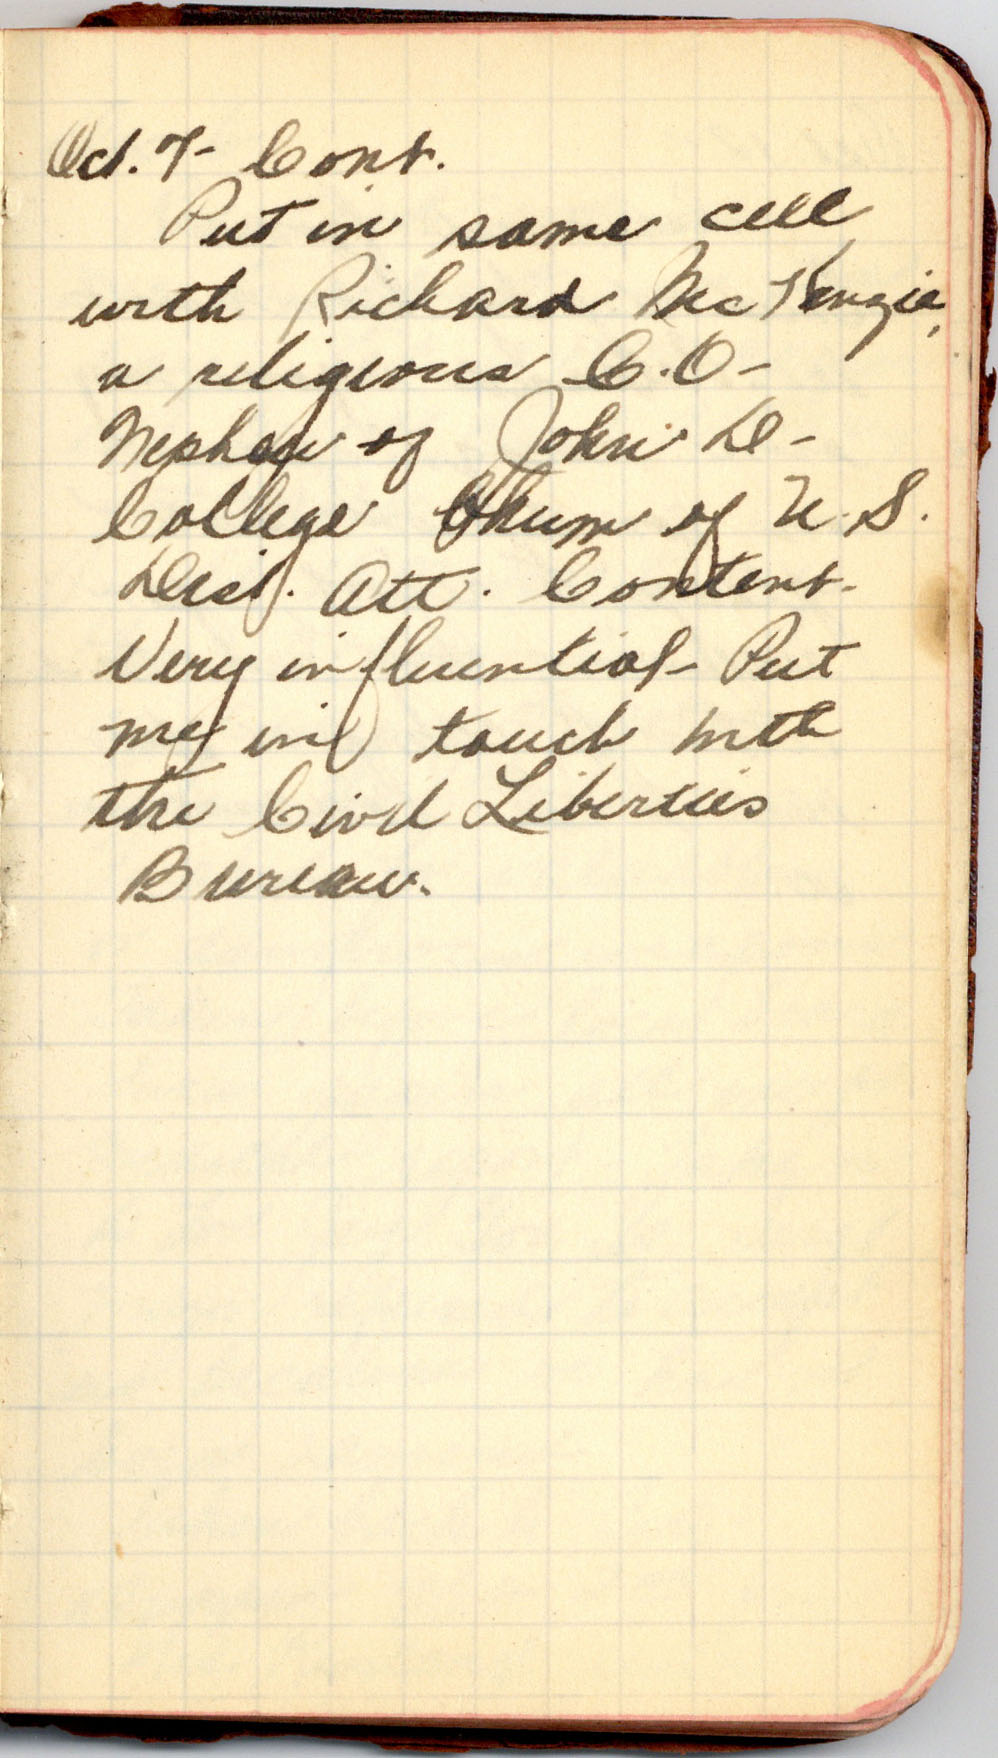 Oct. 7- Cont.
Put in same cell
with Richard McKenzie,
a religious C.O-
Nephew of John D-
College Chum of U.S.
Dist. Att. Content.
Very influential- Put
me in touch with
the Civil Liberties
Bureau.